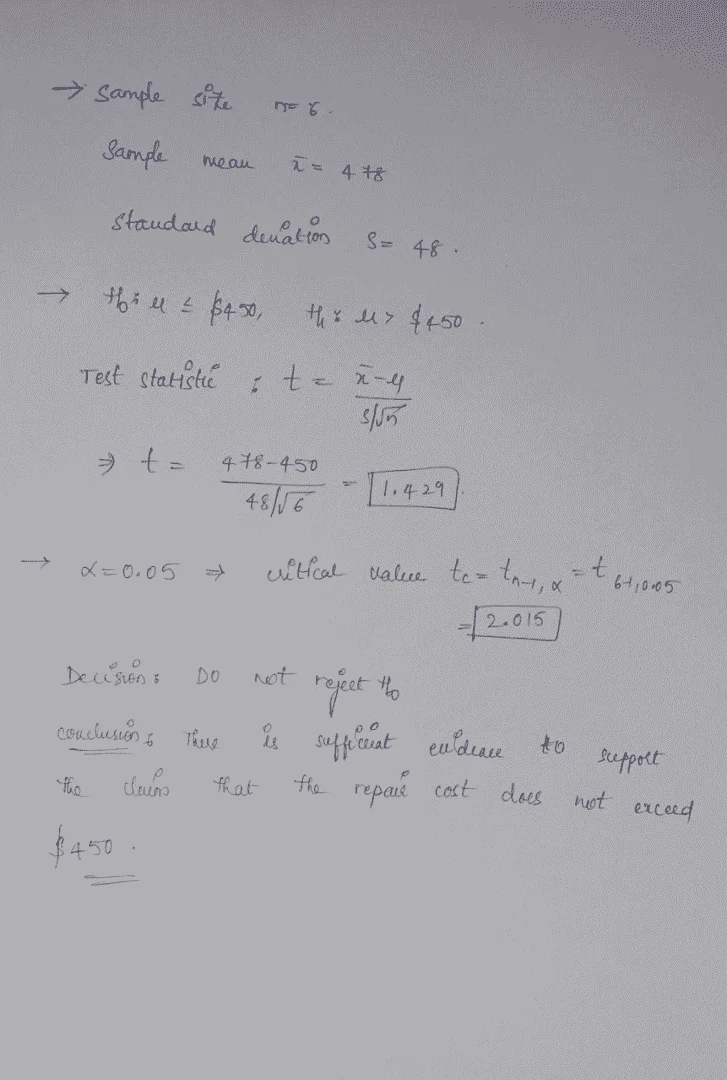 → Sample size n=6.
Sample mean x̄ = 478
Standard deviation S= 48.
→ H₀: μ ≤ $450, H₁: μ > $450.
Test statistic : t = x̄-μ / s/√n
⇒ t = 478-450 / 48/√6 = 1.429.
→ α=0.05 ⇒ critical value tc = tn-1, α = t 6-1, 0.05
= 2.015
Decision: Do not reject H₀
conclusion: There is sufficient evidence to support
the claim that the repair cost does not exceed
$450.